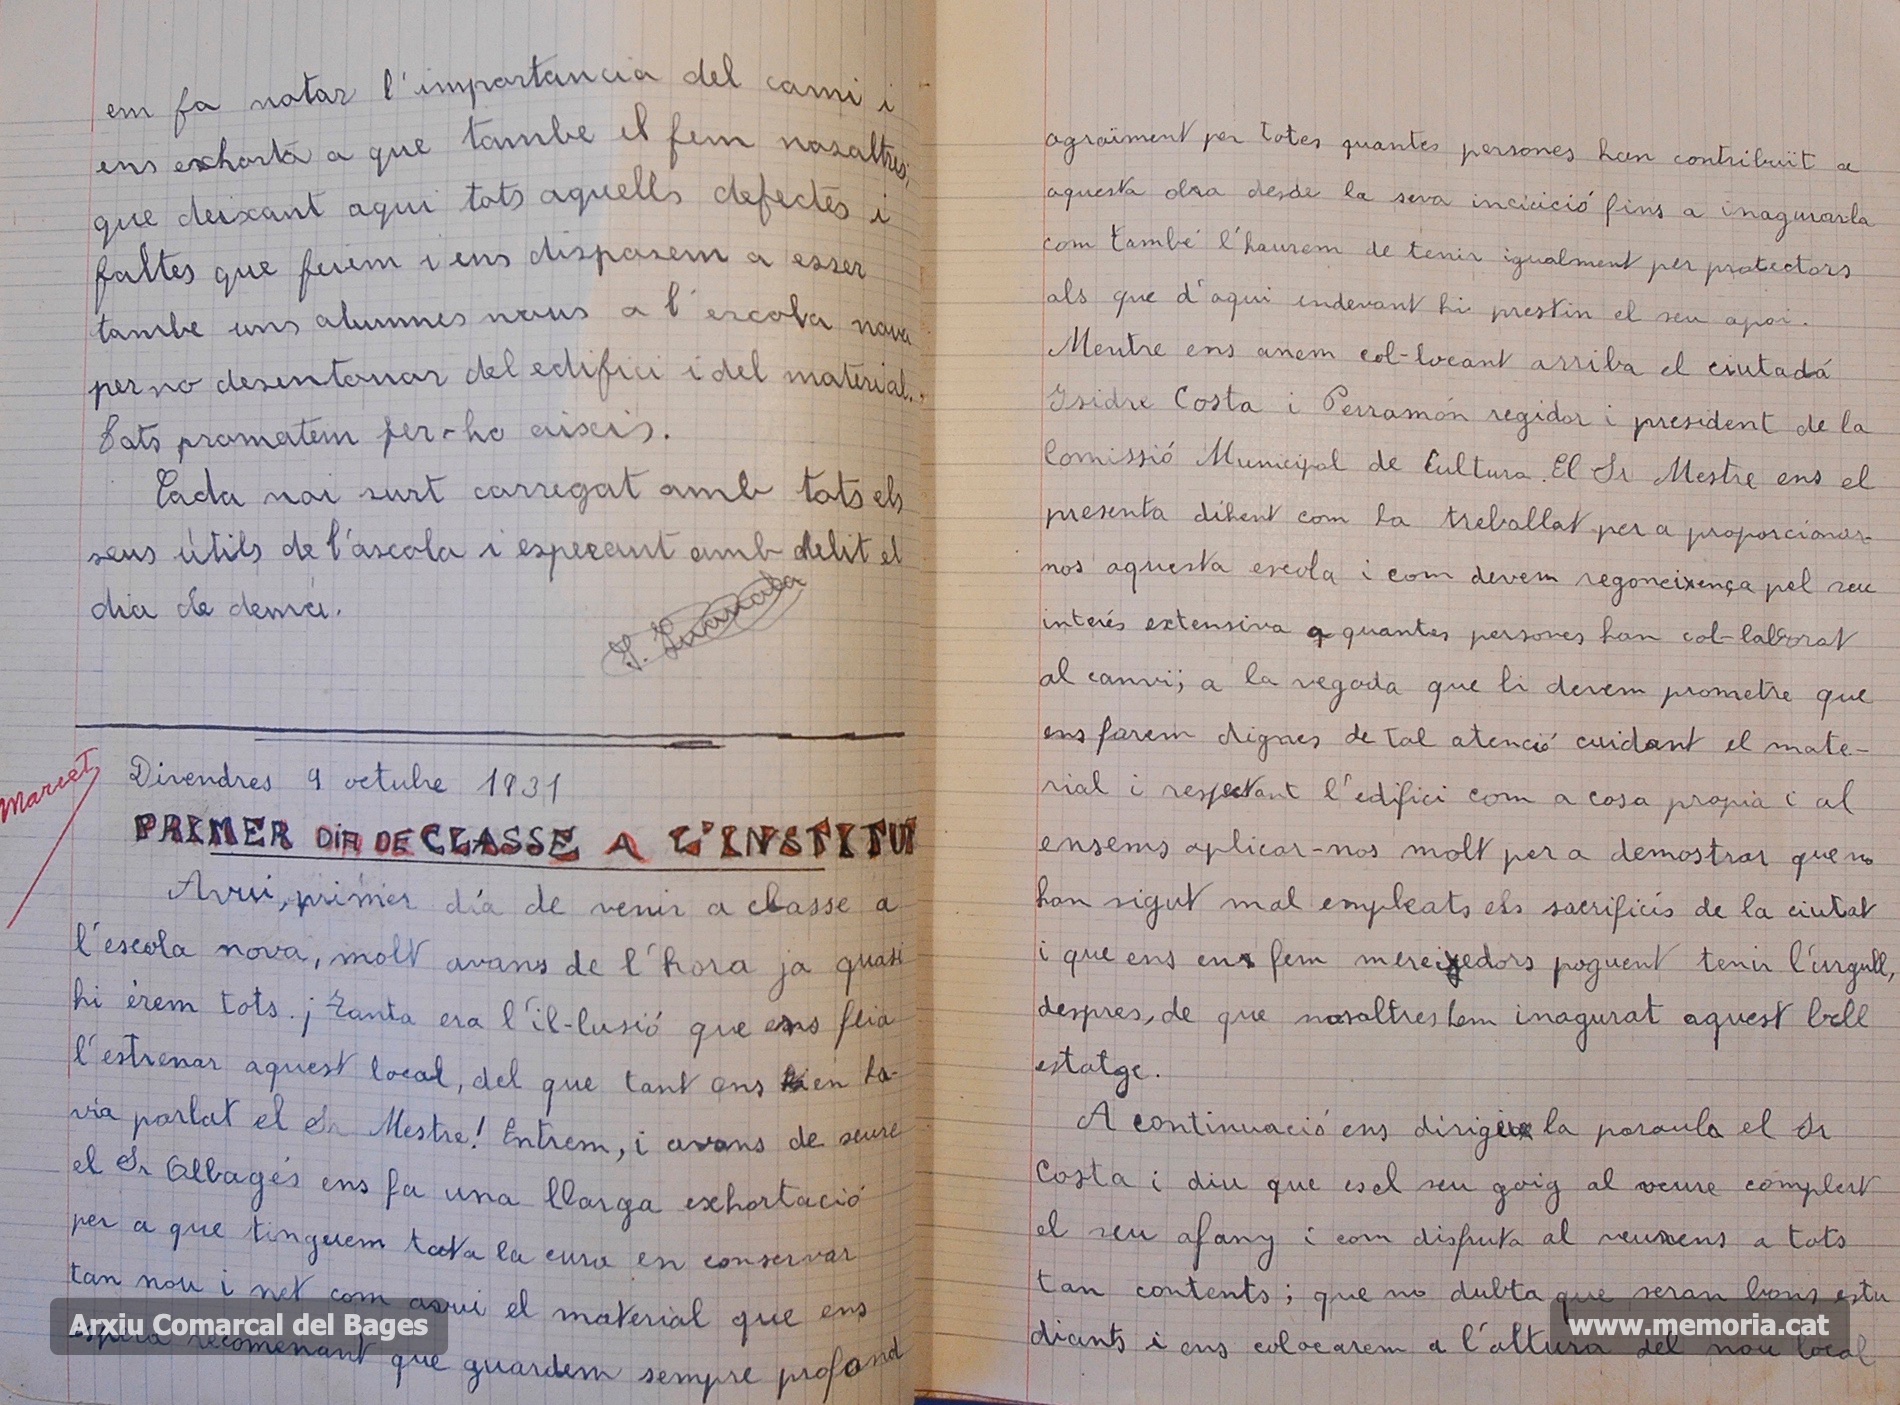 em fa notar l'importancia del cami i
ens exhorta a que tambe el fem nosaltres;
que deixant aqui tots aquells defectes i
faltes que feiem i ens disposem a esser
tambe uns alumnes nous a l'escola nova
per no desentonar del edifici i del material.
Tots prometem fer-ho aixis.
Cada noi surt carregat amb tots els
seus útils de l'ascola i esperant amb delit el
dia de demá.
Marcet
Divendres 9 octubre 1931
PRIMER DIA DE CLASSE A L'INSTITUT
Avui, primer día de venir a classe a
l'escola nova, molt avans de l'hora ja quasi
hi érem tots. ¡Tanta era l'il-lusió que ens feia
l'estrenar aquest local, del que tant ens en ha-
via parlat el Sr Mestre! Entrem, i avans de seure
el Sr Albagés ens fa una llarga exhortació
per a que tinguem tota la cura en conservar
tan nou i net com avui el material que ens
espera recomenant que guardem sempre profond
agraïment per totes quantes persones han contribuït a
aquesta obra desde la seva inicició fins a inagurar-la
com també l'haurem de tenir igualment per protectors
als que d'aqui endevant hi prestin el seu apoi.
Mentre ens anem col-locant arriba el ciutadá
Isidre Costa i Perramón regidor i president de la
Comissió Municipal de Cultura. El Sr Mestre ens el
presenta dihent com ha treballat per a proporcionar-
nos aquesta escola i com devem regoneixença pel seu
interés extensiva a quantes persones han col-laborat
al canvi; a la vegada que li devem prometre que
ens farem dignes de tal atenció cuidant el mate-
rial i respectant l'edifici com a cosa propia i al
ensems aplicar-nos molt per a demostrar que no
han sigut mal empleats els sacrificis de la ciutat
i que ens en fem mereixedors poguent tenir l'urgull,
despres, de que nosaltres hem inagurat aquest bell
estatge.
A continuació ens dirigeix la paraula el Sr
Costa i diu que es el seu goig al veure complert
el seu afany i com disfruta al veurens a tots
tan contents; que no dubta que seran bons estu
diants i ens colocarem a l'altura del nou local
Arxiu Comarcal del Bages
www.memoria.cat